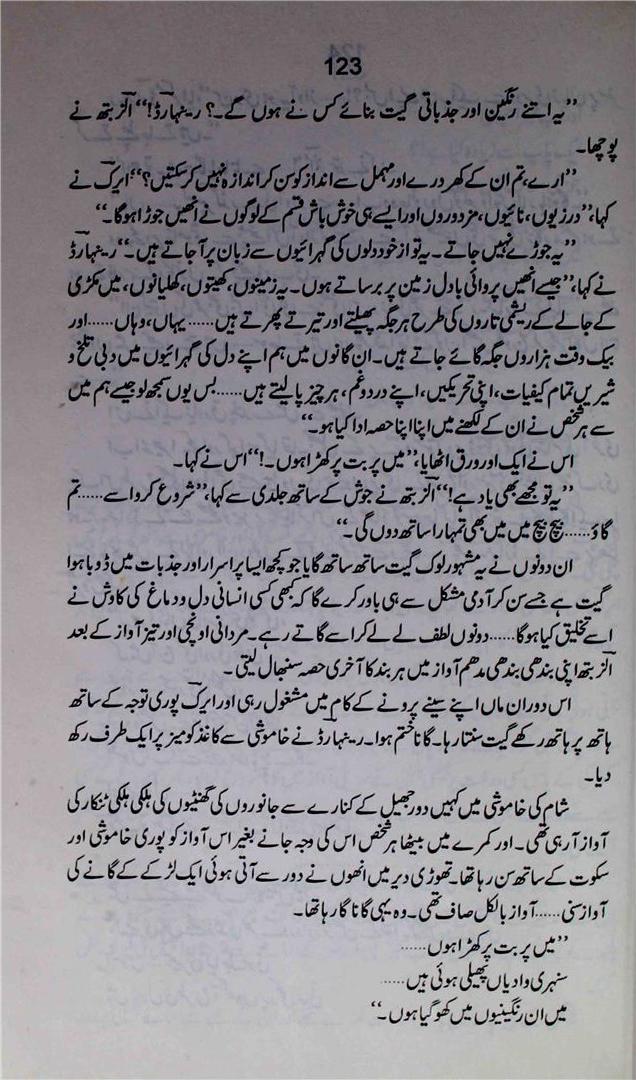 123
”یہ اتنے رنگین اور جذباتی گیت بنائے کس نے ہوں گے۔؟ رینہارڈ!“ الزبتھ نے
پوچھا۔
”ارے، تم ان کے کھردرے اور مہمل سے انداز کو سن کر اندازہ نہیں کر سکتیں؟“ ایرک نے
کہا، ”درزیوں، نائیوں، مزدوروں اور ایسے ہی خوش باش قسم کے لوگوں نے انھیں جوڑا ہوگا۔“
”یہ جوڑے نہیں جاتے۔ یہ تو از خود دلوں کی گہرائیوں سے زبان پر آ جاتے ہیں۔“ رینہارڈ
نے کہا، ”جیسے انھیں پروائی بادل زمین پر برساتے ہوں۔ یہ زمینوں، کھیتوں، کھلیانوں، میں مکڑی
کے جالے کے ریشمی تاروں کی طرح ہر جگہ پھیلتے اور تیرتے پھرتے ہیں...... یہاں، وہاں...... اور
بیک وقت ہزاروں جگہ گائے جاتے ہیں۔ ان گانوں میں ہم اپنے دل کی گہرائیوں میں دبی تلخ و
شیریں تمام کیفیات، اپنی تحریکیں، اپنے درد و غم، ہر چیز پا لیتے ہیں...... بس یوں سمجھ لو جیسے ہم میں
سے ہر شخص نے ان کے لکھنے میں اپنا اپنا حصہ ادا کیا ہو۔“
اس نے ایک اور ورق اٹھایا، ”میں پربت پر کھڑا ہوں۔!“ اس نے کہا۔
”یہ تو مجھے بھی یاد ہے!“ الزبتھ نے جوش کے ساتھ جلدی سے کہا، ”شروع کرو اسے...... تم
گاؤ...... بیچ بیچ میں میں بھی تمہارا ساتھ دوں گی۔“
ان دونوں نے یہ مشہور لوک گیت ساتھ ساتھ گایا جو کچھ ایسا پر اسرار اور جذبات میں ڈوبا ہوا
گیت ہے جسے سن کر آدمی مشکل سے ہی باور کرے گا کہ کبھی کسی انسانی دل و دماغ کی کاوش نے
اسے تخلیق کیا ہوگا...... دونوں لطف لے لے کر اسے گاتے رہے۔ مردانی اونچی اور تیز آواز کے بعد
الزبتھ اپنی بندھی بندھی مدھم آواز میں ہر بند کا آخری حصہ سنبھال لیتی۔
اس دوران ماں اپنے سینے پرونے کے کام میں مشغول رہی اور ایرک پوری توجہ کے ساتھ
ہاتھ پر ہاتھ رکھے گیت سنتا رہا۔ گانا ختم ہوا۔ رینہارڈ نے خاموشی سے کاغذ کو میز پر ایک طرف رکھ
دیا۔
شام کی خاموشی میں کہیں دور جھیل کے کنارے سے جانوروں کی گھنٹیوں کی ہلکی ہلکی ٹنکار کی
آواز آ رہی تھی۔ اور کمرے میں بیٹھا ہر شخص اس کی وجہ جانے بغیر اس آواز کو پوری خاموشی اور
سکوت کے ساتھ سن رہا تھا۔ تھوڑی دیر میں انھوں نے دور سے آتی ہوئی ایک لڑکے کے گانے کی
آواز سنی...... آواز بالکل صاف تھی۔ وہ یہی گانا گا رہا تھا۔
”میں پربت پر کھڑا ہوں......
سنہری وادیاں پھیلی ہوئی ہیں......
میں ان رنگینیوں میں کھو گیا ہوں۔“